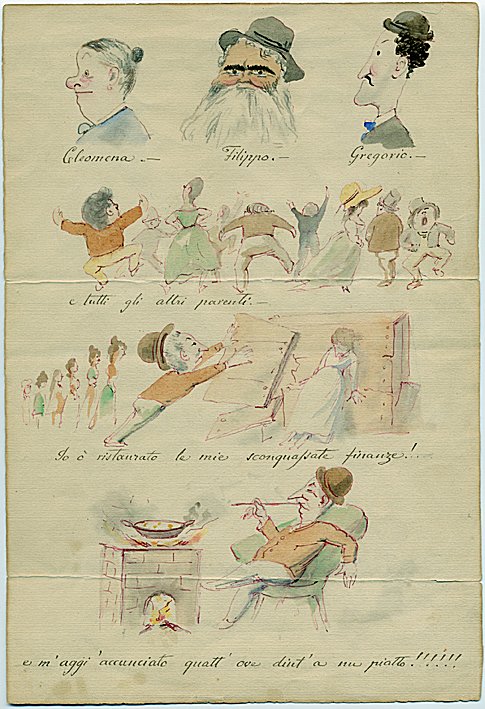 Cleomena.— Filippo.— Gregorio.—
e tutti gli altri parenti.—
Io ò ristaurato le mie sconquassate finanze!
e m'aggi'accunciato quatt'ove dint'a nu piatto!!!!!!